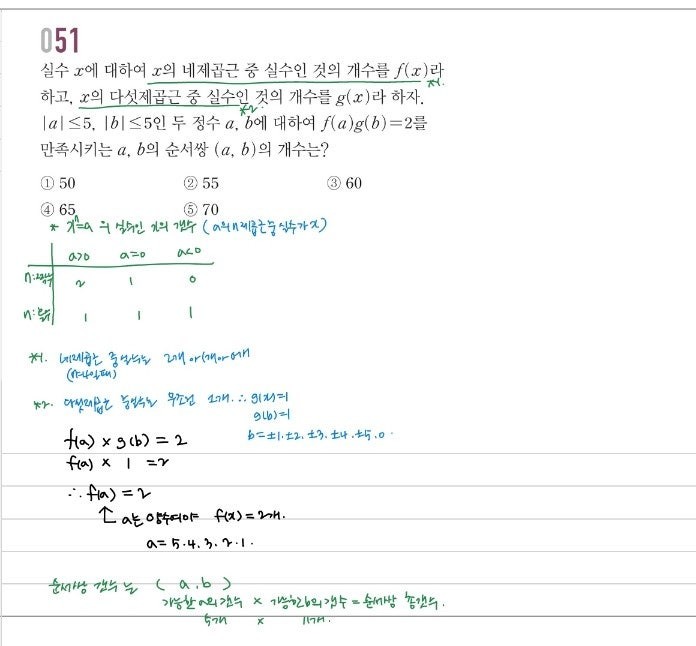 051
실수 x에 대하여 x의 네제곱근 중 실수인 것의 개수를 f(x)라
*1.
하고, x의 다섯제곱근 중 실수인 것의 개수를 g(x)라 하자.
*2.
|a|≤5, |b|≤5인 두 정수 a, b에 대하여 f(a)g(b)=2를
만족시키는 a, b의 순서쌍 (a, b)의 개수는?
① 50 ② 55 ③ 60
④ 65 ⑤ 70
* xⁿ=a 의 실수인 x의 갯수 (a의 n제곱근 중 실수가 x)
a>0 a=0 a<0
n:짝수 2 1 0
n:홀수 1 1 1
*1. 네제곱근 중 실수는 2개 or 1개 or 0개
(짝수일때)
*2. 다섯제곱근 중 실수는 무조건 1개. ∴ g(x)=1
g(b)=1
b=±1, ±2, ±3, ±4, ±5, 0.
f(a) × g(b) = 2
f(a) × 1 = 2
∴ f(a) = 2
↑ a는 양수여야 f(x)=2개.
a= 5·4·3·2·1.
순서쌍 갯수는 (a, b)
가능한 a의 갯수 × 가능한 b의 갯수 = 순서쌍 총갯수.
5개 × 11개.